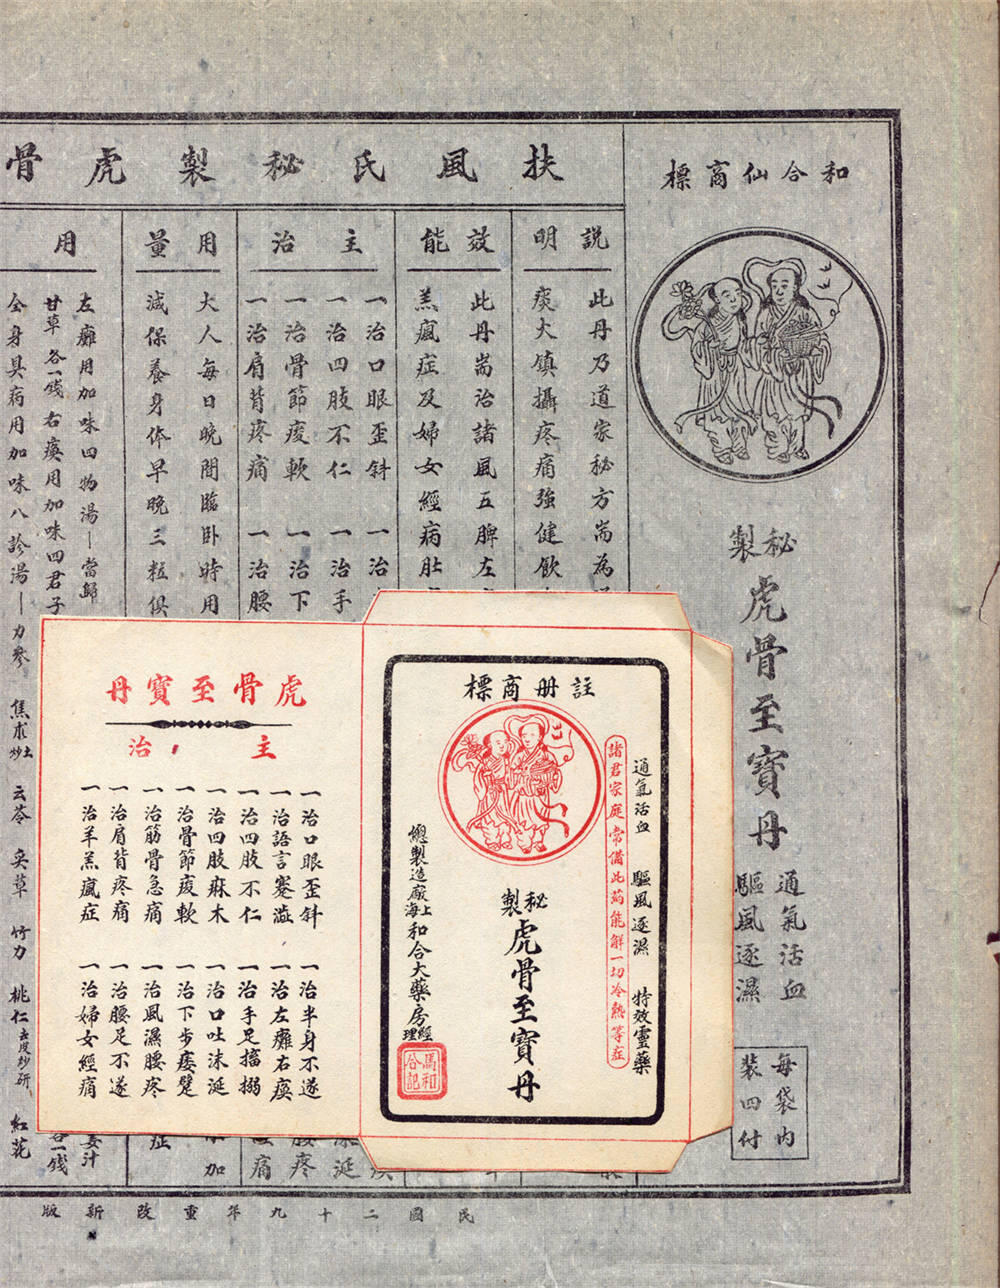 和合仙商標
秘製
虎骨至寶丹
通氣活血
驅風逐濕
每袋内
装四付
扶風氏秘製虎骨
說明
此丹乃道家秘方耑為
痰火鎮攝疼痛強健飲
效能
此丹耑治諸風五脾左
羔瘋症及婦女經病肚
主治
一治口眼歪斜　一治
一治四肢不仁　一治手
一治骨節痠軟　一治下
一治肩背疼痛　一治腰
用量
大人每日晚間臨卧時用
減保養身体早晚三粒俱
用
左癱用加味四物湯—當歸
甘草 各一錢 右瘓用加味四君子
全身具病用加味八診湯—力參 焦朮土炒 云苓 炙草 竹力 桃仁去皮炒研 紅花
姜汁
各一錢
民國二十九年重改新版
註册商標
通氣活血　驅風逐濕　特效靈藥
諸君家庭常備此药能解一切冷熱等症
秘製
虎骨至寶丹
總製造廠上海和合大藥房經理
馮和合記
虎骨至寶丹
主治
一治口眼歪斜　一治半身不遂
一治語言蹇澁　一治左癱右瘓
一治四肢不仁　一治手足搐搦
一治四肢麻木　一治口吐沫涎
一治骨節痠軟　一治下步痿躄
一治筋骨急痛　一治風濕腰疼
一治肩背疼痛　一治腰足不遂
一治羊羔瘋症　一治婦女經痛